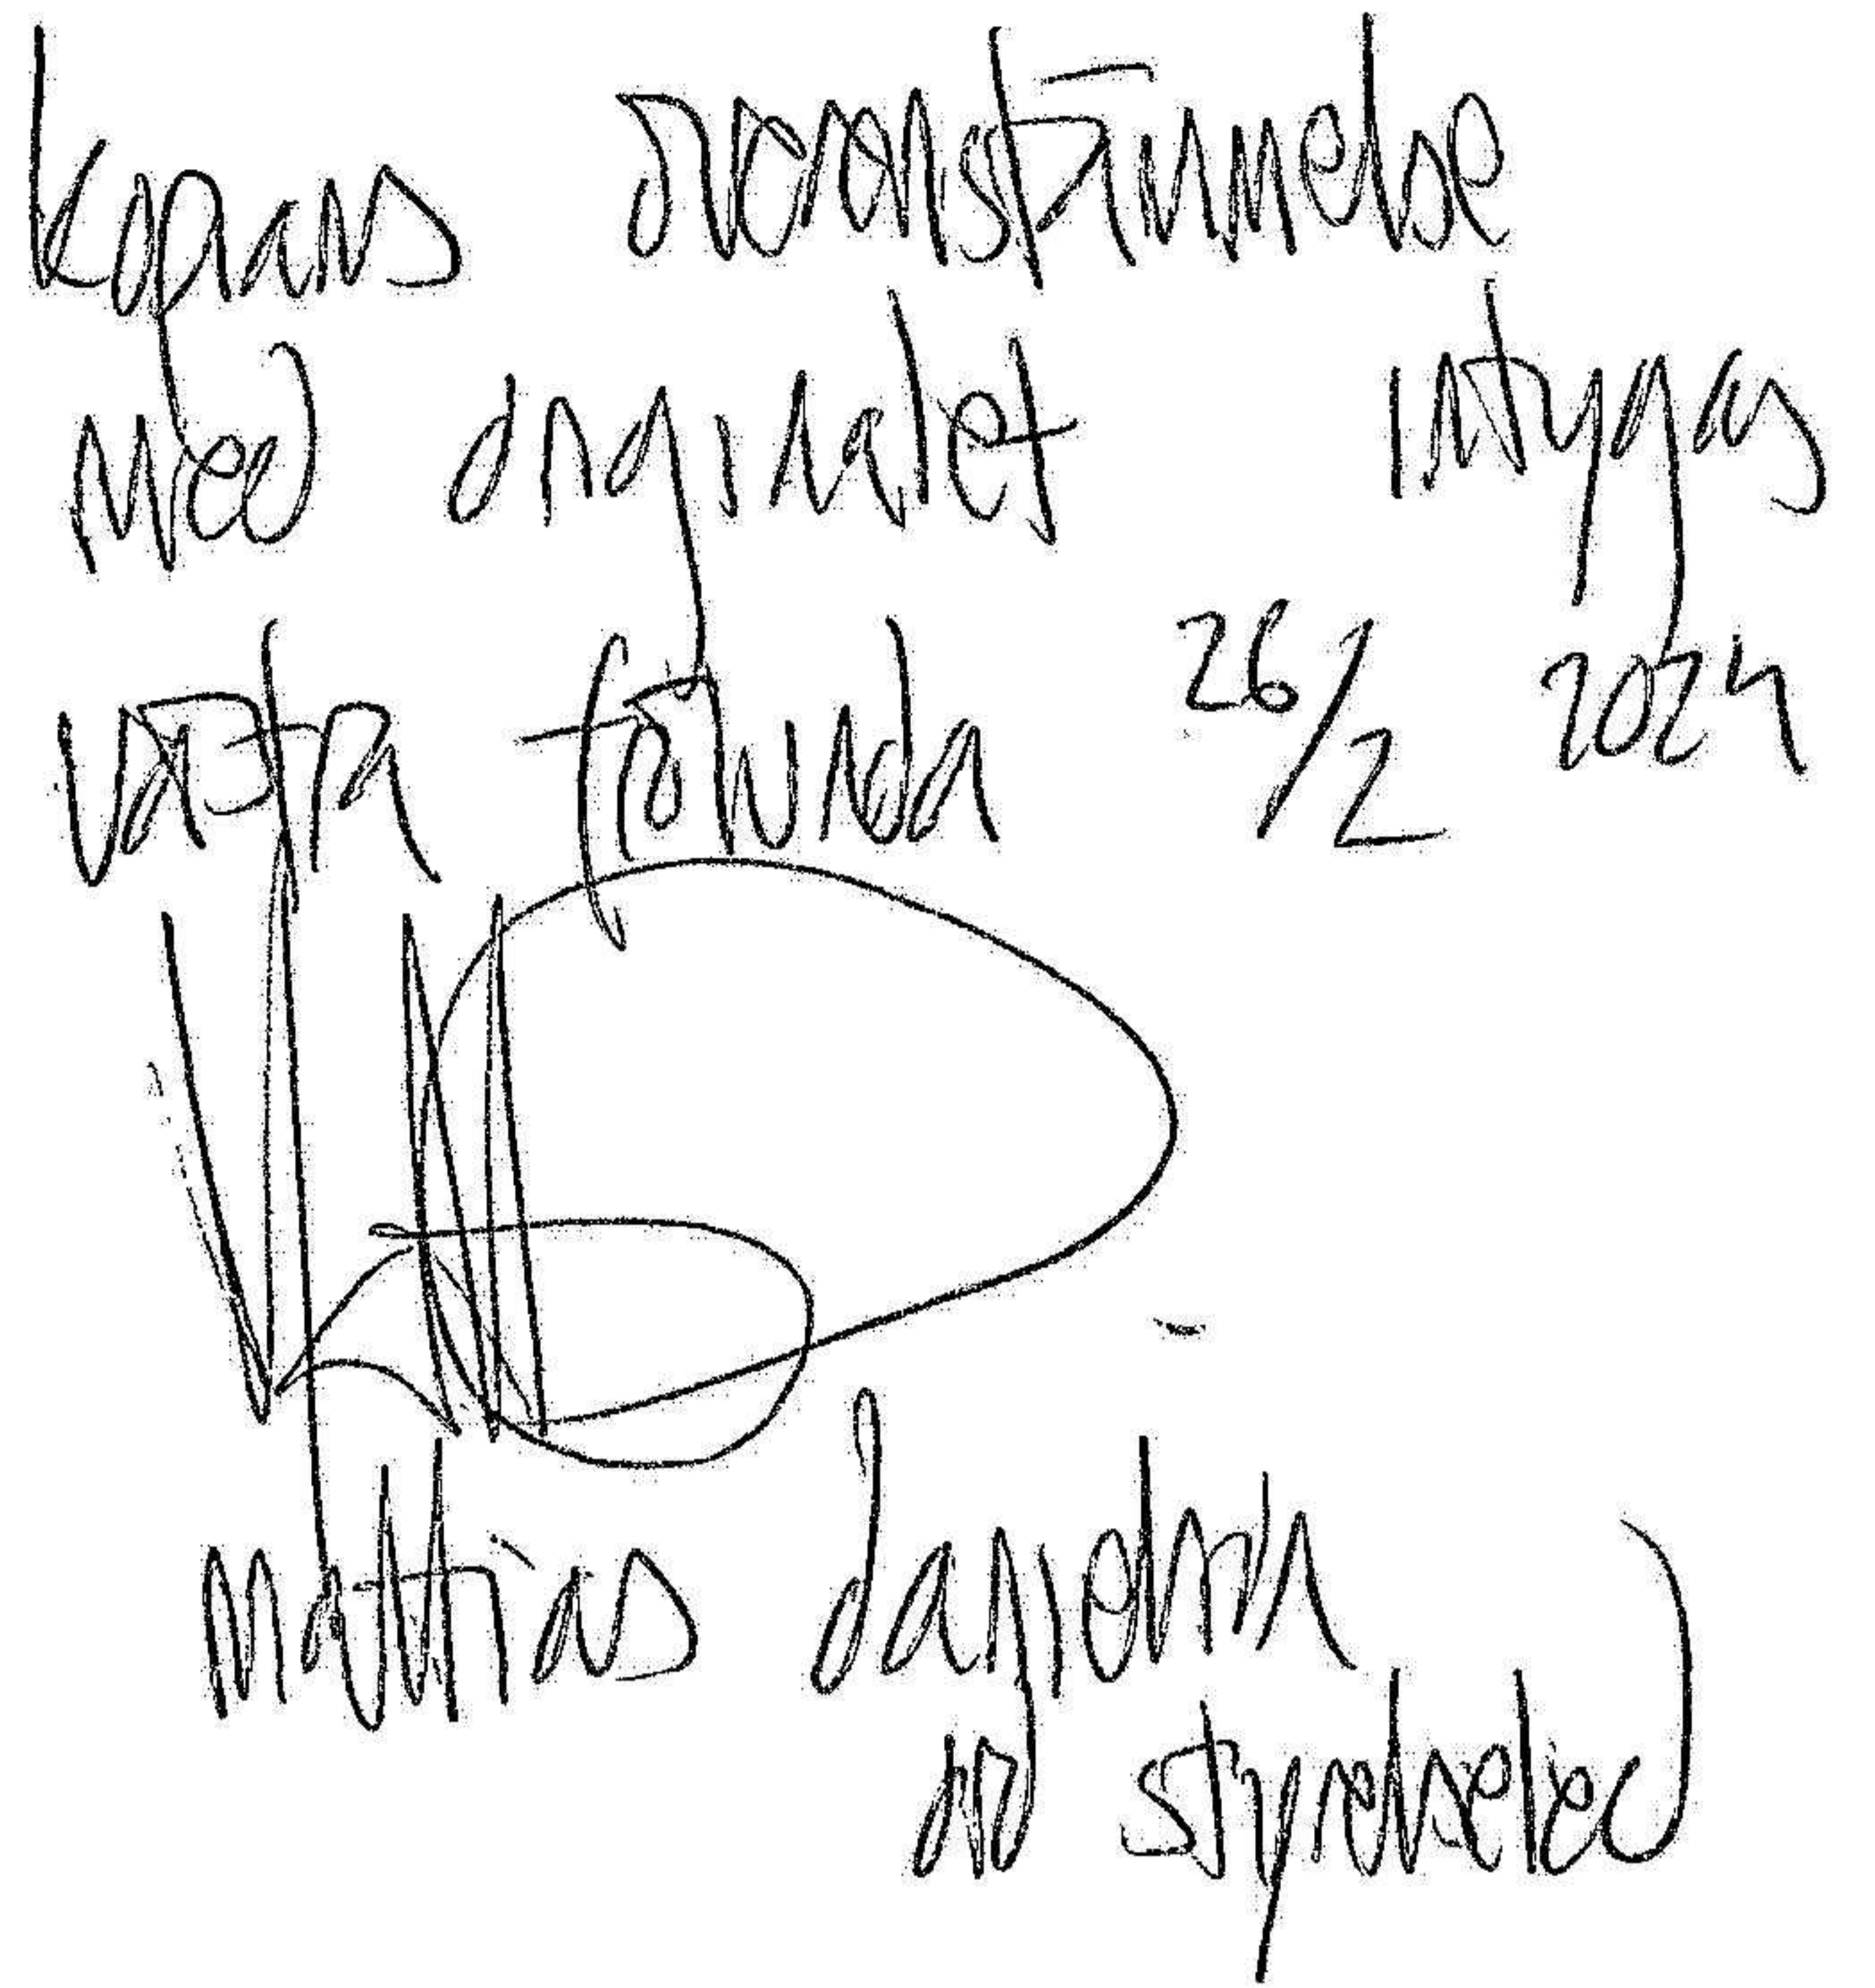 Kopians överensstämmelse
med originalet intygas
Västra Frölunda 26/2 2024
Mattias Danielsson
ord styrelseled